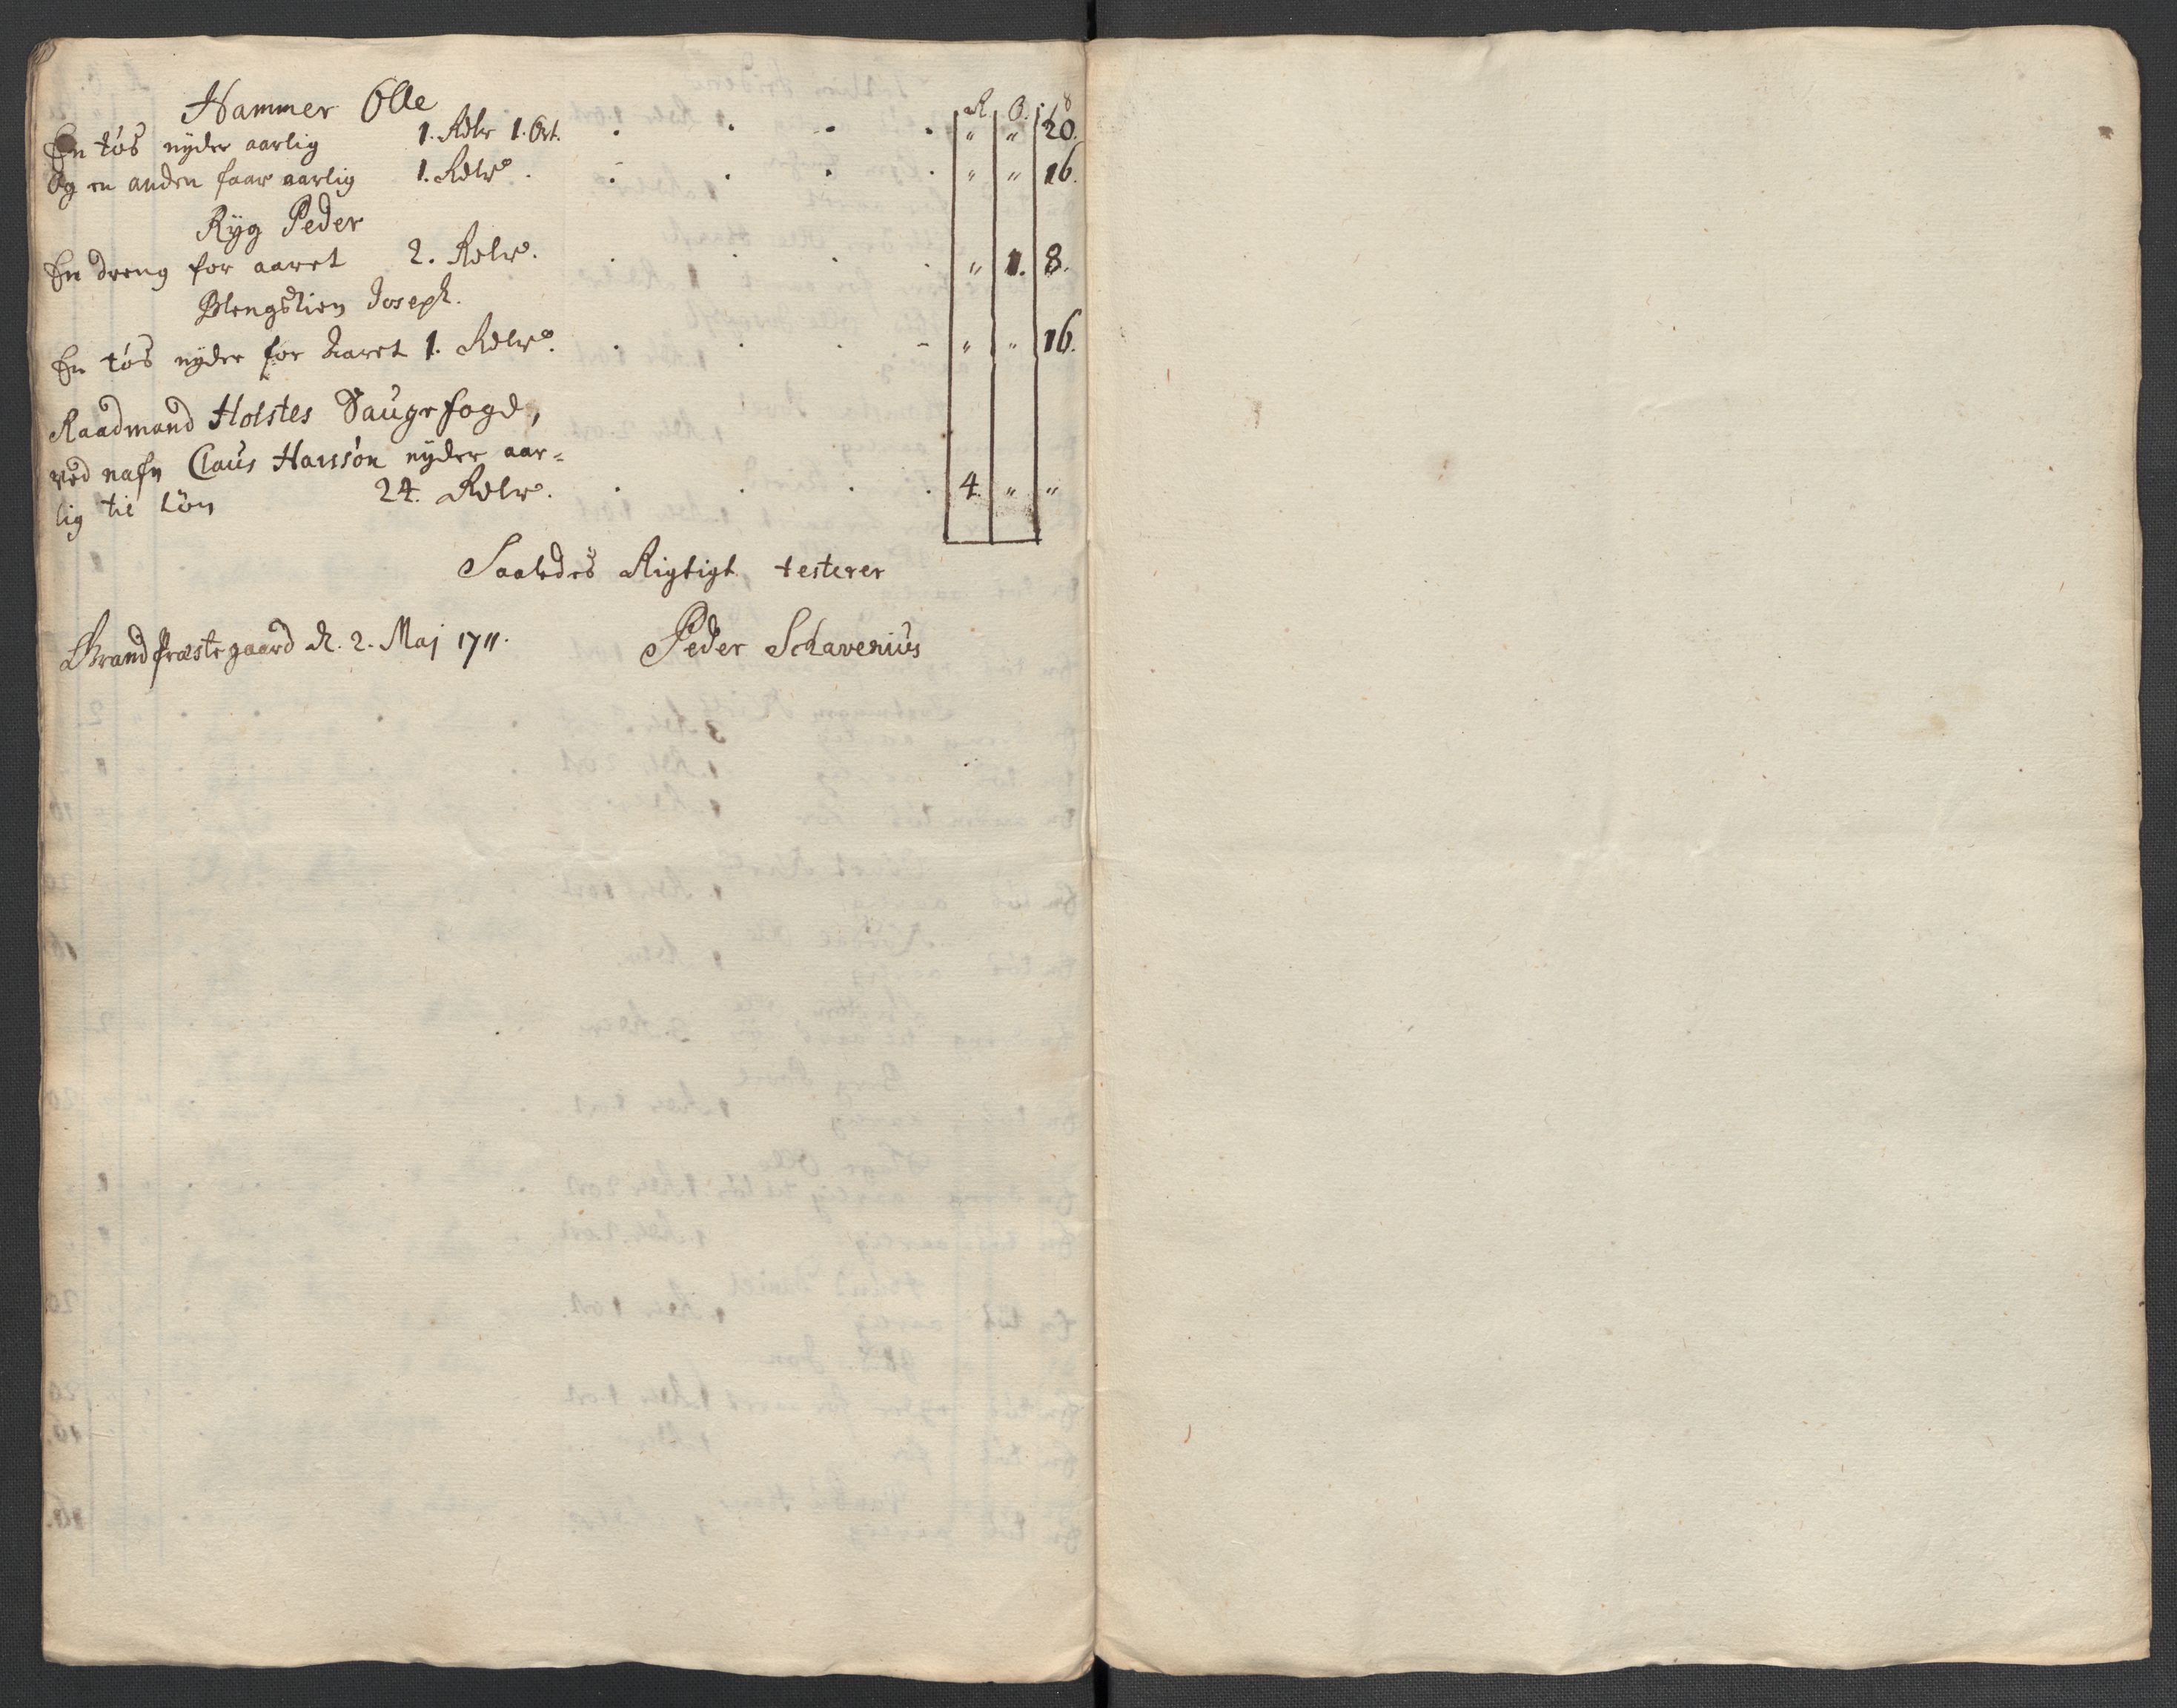 Hammer Olle
R. O. ß
En tøs nyder aarlig 1. Rdlr 1. Ort. . . . . " " 20.
Og en anden faar aarlig 1. Rdlr. . . . . " " 16.
Ryg Peder
En dreng for aaret 2. Rdlr. . . . . " 1. 8.
Joseph.
En tøs nyder for haaret 1. Rdlr. . . . . " " 16.
Raadmand Holstes Saugefogd,
ved nafn Claus Hansøn nyder aar-
lig til Løn 24. Rdlr. . . . . 4. " "
Saaledes Rigtigt testerer
Strand Præstegaard d. 2. Maj 1711. Peder Schavenius